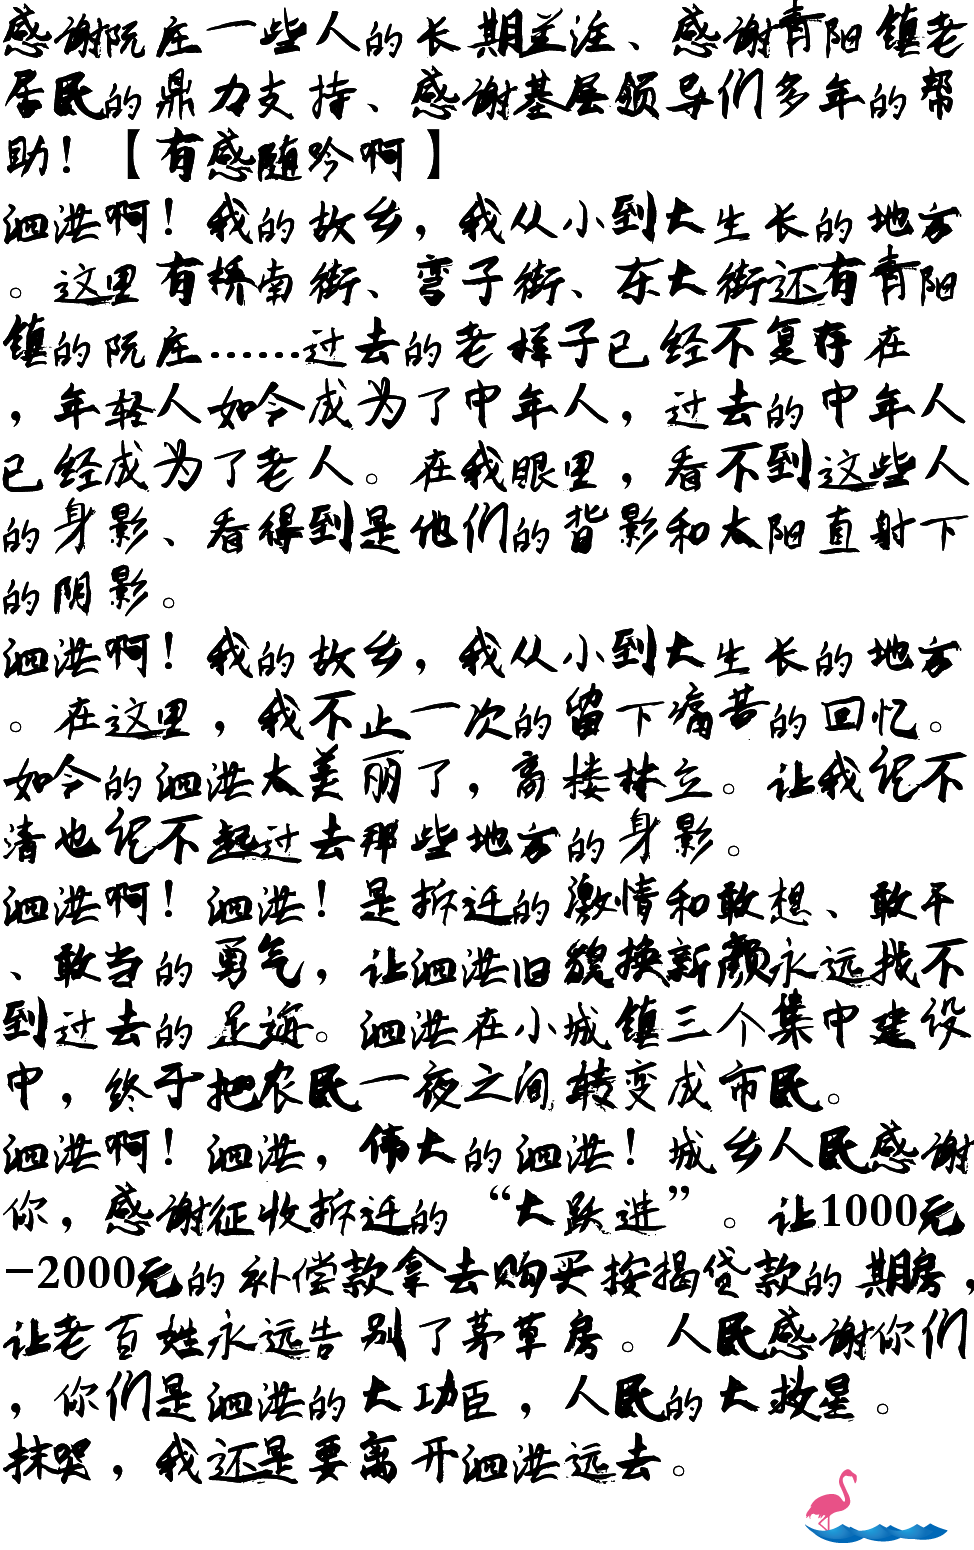 感谢阮庄一些人的长期关注、感谢青阳镇老
居民的鼎力支持、感谢基层领导们多年的帮
助！【有感随吟啊】
泗洪啊！我的故乡，我从小到大生长的地方
。这里有桥南街、弯子街、东大街还有青阳
镇的阮庄……过去的老样子已经不复存在
，年轻人如今成为了中年人，过去的中年人
已经成为了老人。在我眼里，看不到这些人
的身影、看得到是他们的背影和太阳直射下
的阴影。
泗洪啊！我的故乡，我从小到大生长的地方
。在这里，我不止一次的留下痛苦的回忆。
如今的泗洪太美丽了，高楼林立。让我记不
清也记不起过去那些地方的身影。
泗洪啊！泗洪！是拆迁的激情和敢想、敢干
、敢当的勇气，让泗洪旧貌换新颜永远找不
到过去的足迹。泗洪在小城镇三个集中建设
中，终于把农民一夜之间转变成市民。
泗洪啊！泗洪，伟大的泗洪！城乡人民感谢
你，感谢征收拆迁的“大跃进”。让1000元
-2000元的补偿款拿去购买按揭贷款的期房，
让老百姓永远告别了茅草房。人民感谢你们
，你们是泗洪的大功臣，人民的大救星。
抹哭，我还是要离开泗洪远去。